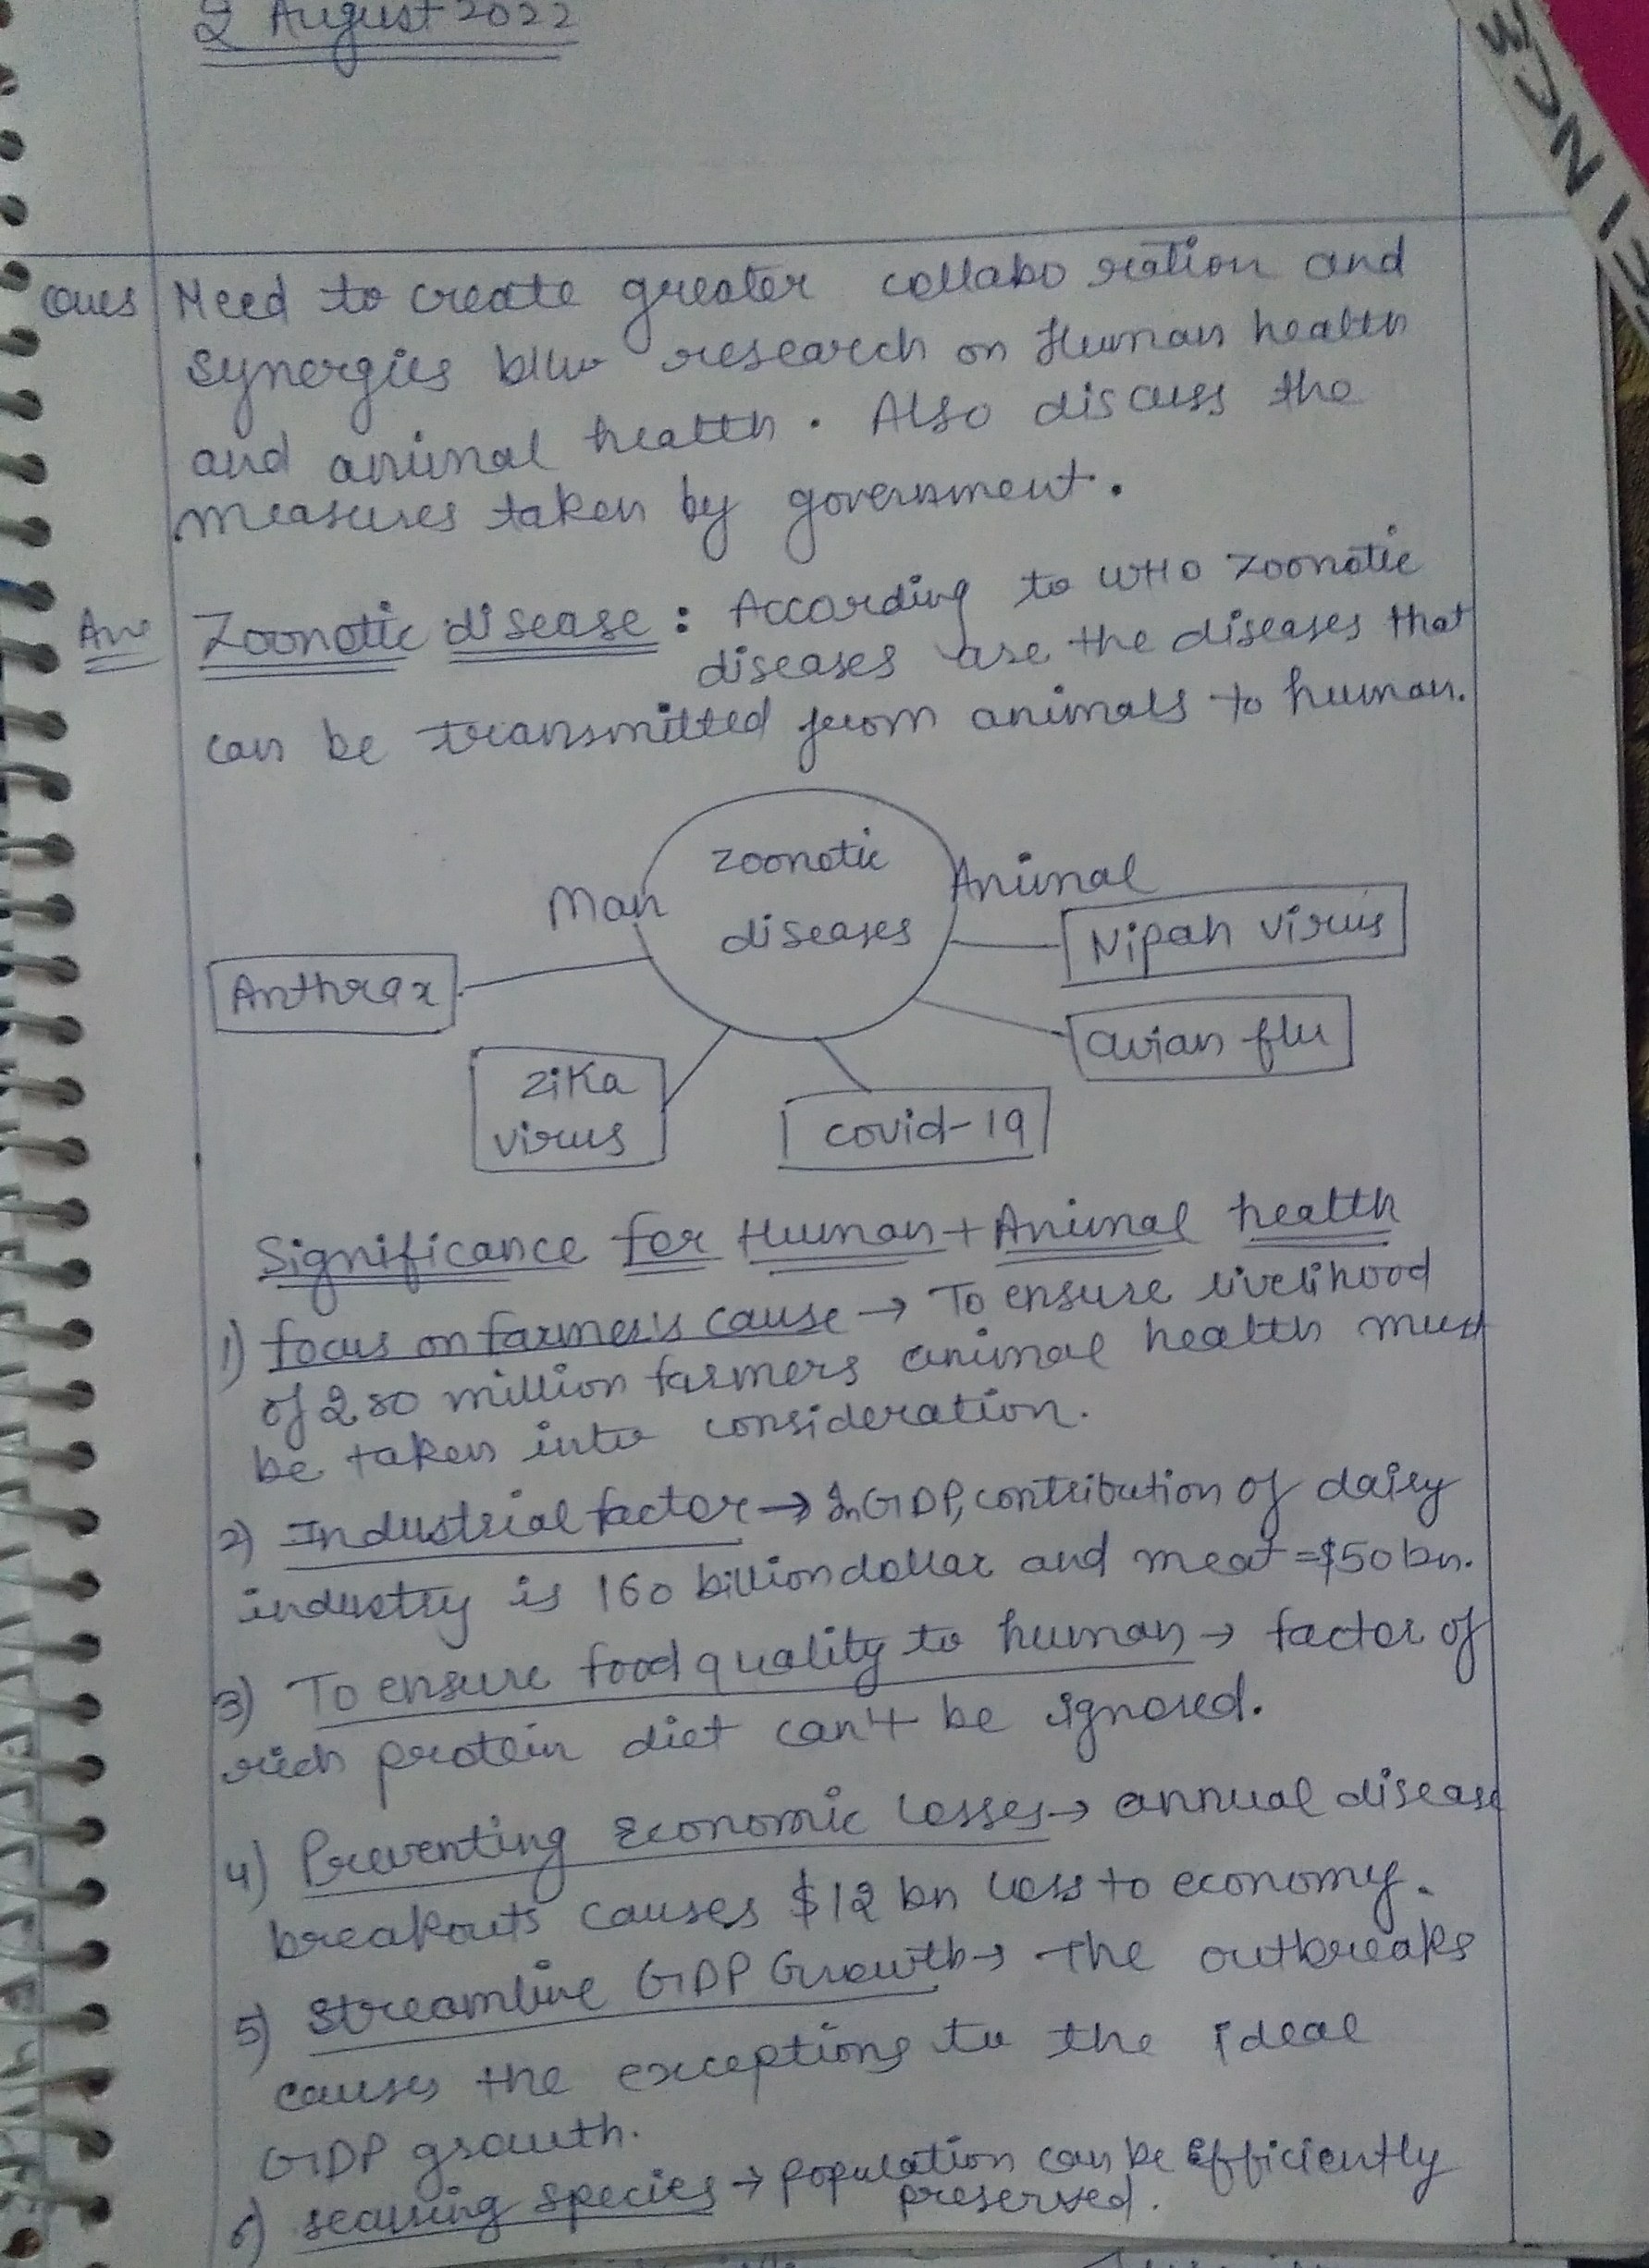 2 August 2022
Ques Need to create greater collaboration and
synergies b/w research on Human health
and animal health. Also discuss the
measures taken by government.
Ans Zoonotic disease: According to WHO zoonotic
diseases are the diseases that
can be transmitted from animals to human.
zoonotic
diseases
Man
Animal
Nipah virus
Anthrax
avian flu
zika
virus
covid-19
Significance for Human + Animal health
1) focus on farmer's cause → To ensure livelihood
of 280 million farmers animal health must
be taken into consideration.
2) Industrial factor → In GDP, contribution of dairy
industry is 160 billion dollar and meat = $50 bn.
3) To ensure food quality to human → factor of
rich protein diet can't be ignored.
4) Preventing Economic losses → annual disease
breakouts causes $12 bn loss to economy.
5) Streamline GDP Growth → The outbreaks
causes the exceptions to the ideal
GDP growth.
6) species → population can be Efficiently
preserved.